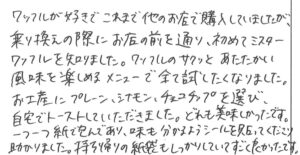 ワッフルが好きでこれまで他のお店で購入していましたが、
乗り換えの際にお店の前を通り、初めてミスター
ワッフルを知りました。ワッフルのサクッとあたたかい
風味を楽しめるメニューで全て試したくなりました。
お土産にプレーン、シナモン、チョコチップを選び、
自宅でトーストしていただきました。とても美味しかったです。
一つ一つ紙で包んであり、味も分かるようシールを貼ってくださり
助かりました。持ち帰りの紙袋もしっかりしていてすごく良かったです。